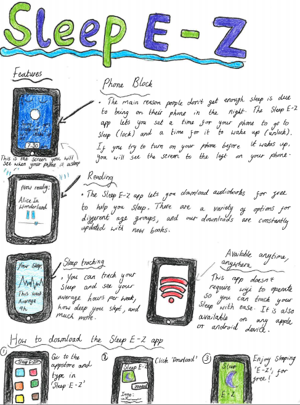 Sleep E-Z
Features
Phone Block
• The main reason people don't get enough sleep is due
to being on their phone in the night. The Sleep E-Z
app lets you set a time for your phone to go to
Sleep (lock) and a time for it to wake up (unlock).
If you try to turn on your phone before it wakes up,
you will see the screen to the left on your phone.
This is the screen you will
see when your phone is asleep
Reading
now ready:
Alice In
Wonderland
• The Sleep E-Z app lets you download audiobooks for free
to help you sleep. There are a variety of options for
different age groups, and our downloads are constantly
updated with new books.
Sleep tracking
Your Sleep
• You can track your
sleep and see your
average hours per week,
how deep you slept, and
much more.
Available anytime,
anywhere
This app doesn't
require wifi to operate
so you can track your
sleep with ease. It is also
available on any apple
or android device.
How to download the Sleep E-Z app
①
Go to the
appstore and
type in
'Sleep E-Z'
②
Sleep E-Z
Click 'Download'
③
Sleep
E-Z
Enjoy sleeping
'E-Z', for
free!